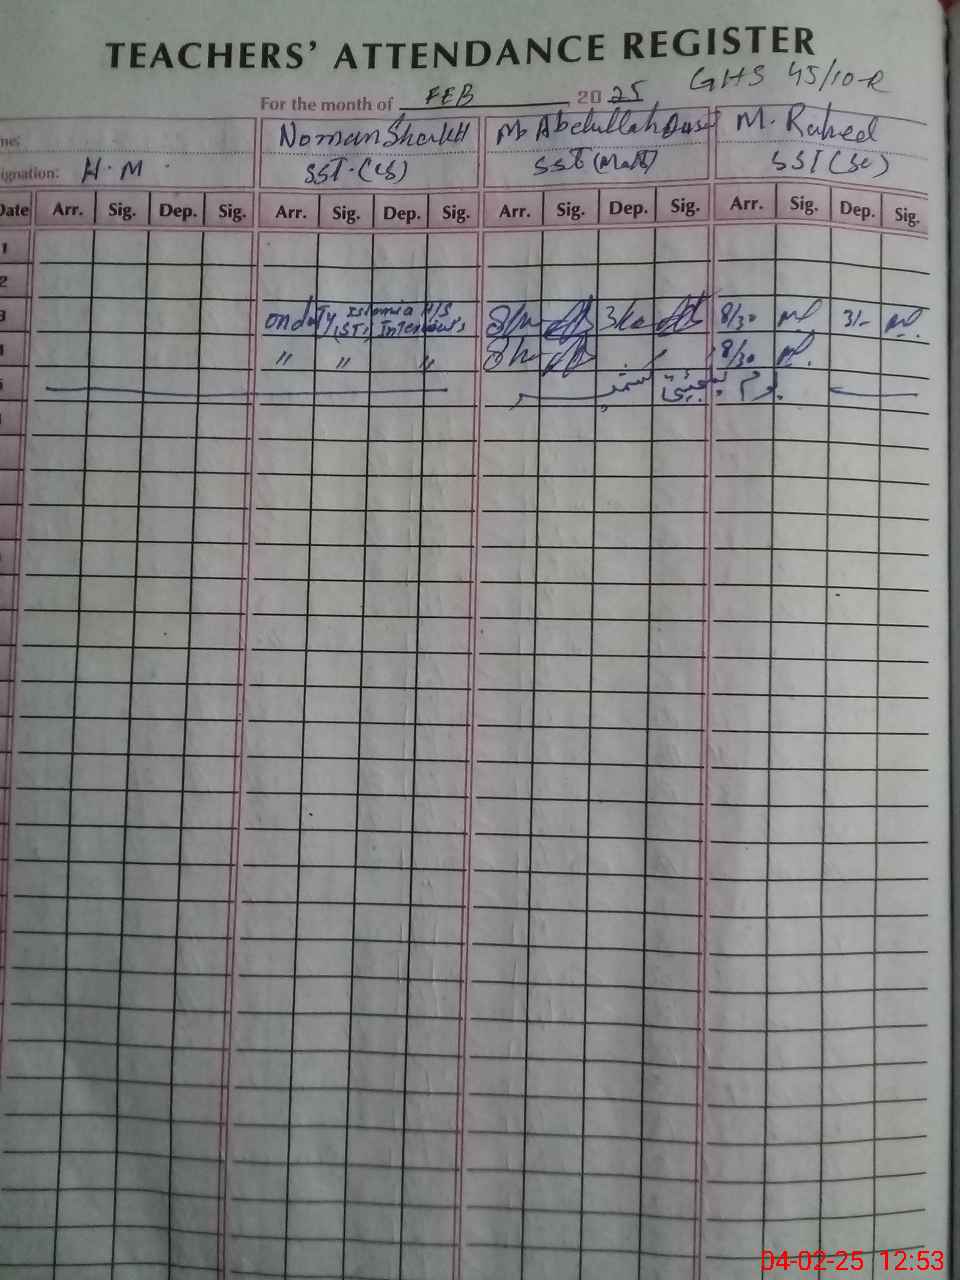 TEACHERS' ATTENDANCE REGISTER
For the month of FEB 2025 GHS 45/10-R
Noman Sharikh M Abdullah M. Raheed
ignation: H.M SST.(CS) SST (Math) SST (Sc)
Date Arr. Sig. Dep. Sig. Arr. Sig. Dep. Sig. Arr. Sig. Dep. Sig. Arr. Sig. Dep. Sig.
1
2
3 on duty Islamia H/S (STI) Interview's 8/30 3/-
" " " 8/30
5 یوم یکجہتی کشمیر
04-02-25 12:53